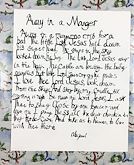 Away in a Manger
Away in a manger no crib for a
bed the little Lord Jesus laid down
his sweet head. The stars in the sky
looked down where he lay. The little Lord Jesus asleep
on the hay. The cattle are lowing the baby
awakes but little Lord Jesus no crying he makes
I love thee Lord Jesus look down
from the sky and stay by my cradle till
morning is nigh. Be near me Lord Jesus I ask
thee to stay close by me forever and
love me I pray. Bless all the dear children
in thy tender care and take us to heaven to live
with thee there
Abigail